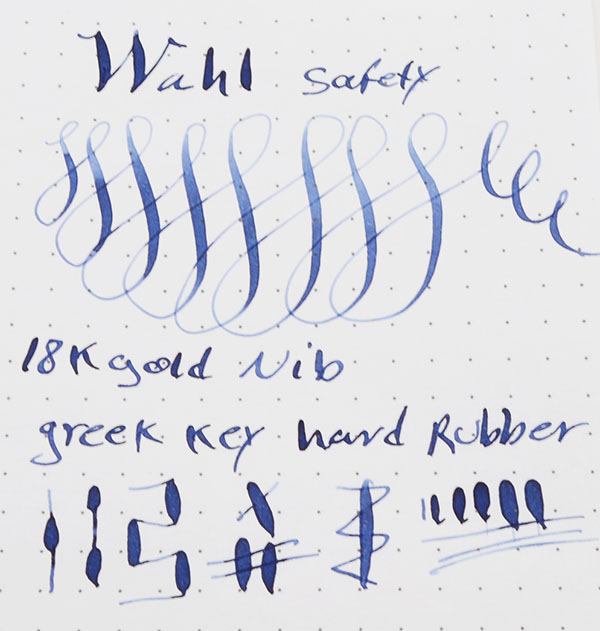 Wahl safety
18K gold Nib
greek Key hard Rubber